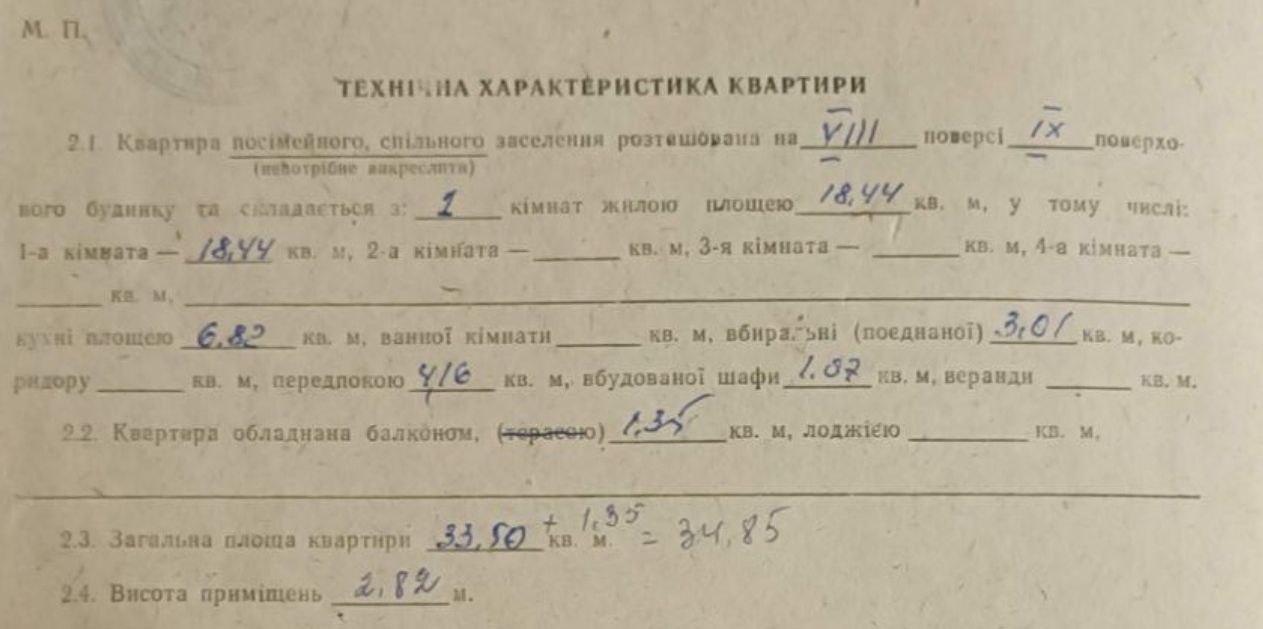 М. П.
ТЕХНІЧНА ХАРАКТЕРИСТИКА КВАРТИРИ
2.1. Квартира посімейного, спільного заселення розташована на VIII поверсі IX поверхо-
(непотрібне викреслити)
вого будинку та складається з: 1 кімнат жилою площею 18,44 кв. м, у тому числі:
1-а кімната — 18,44 кв. м, 2-а кімната — ______ кв. м, 3-я кімната — ______ кв. м, 4-а кімната —
______ кв. м, ______
кухні площею 6.82 кв. м, ванної кімнати ______ кв. м, вбиральні (поєднаної) 3,01 кв. м, ко-
ридору ______ кв. м, передпокою 4,16 кв. м, вбудованої шафи 1.07 кв. м, веранди ______ кв. м.
2.2. Квартира обладнана балконом, (терасою) 1.35 кв. м, лоджією ______ кв. м,
2.3. Загальна площа квартири 33,50 кв. м. + 1,35 = 34,85
2.4. Висота приміщень 2,82 м.